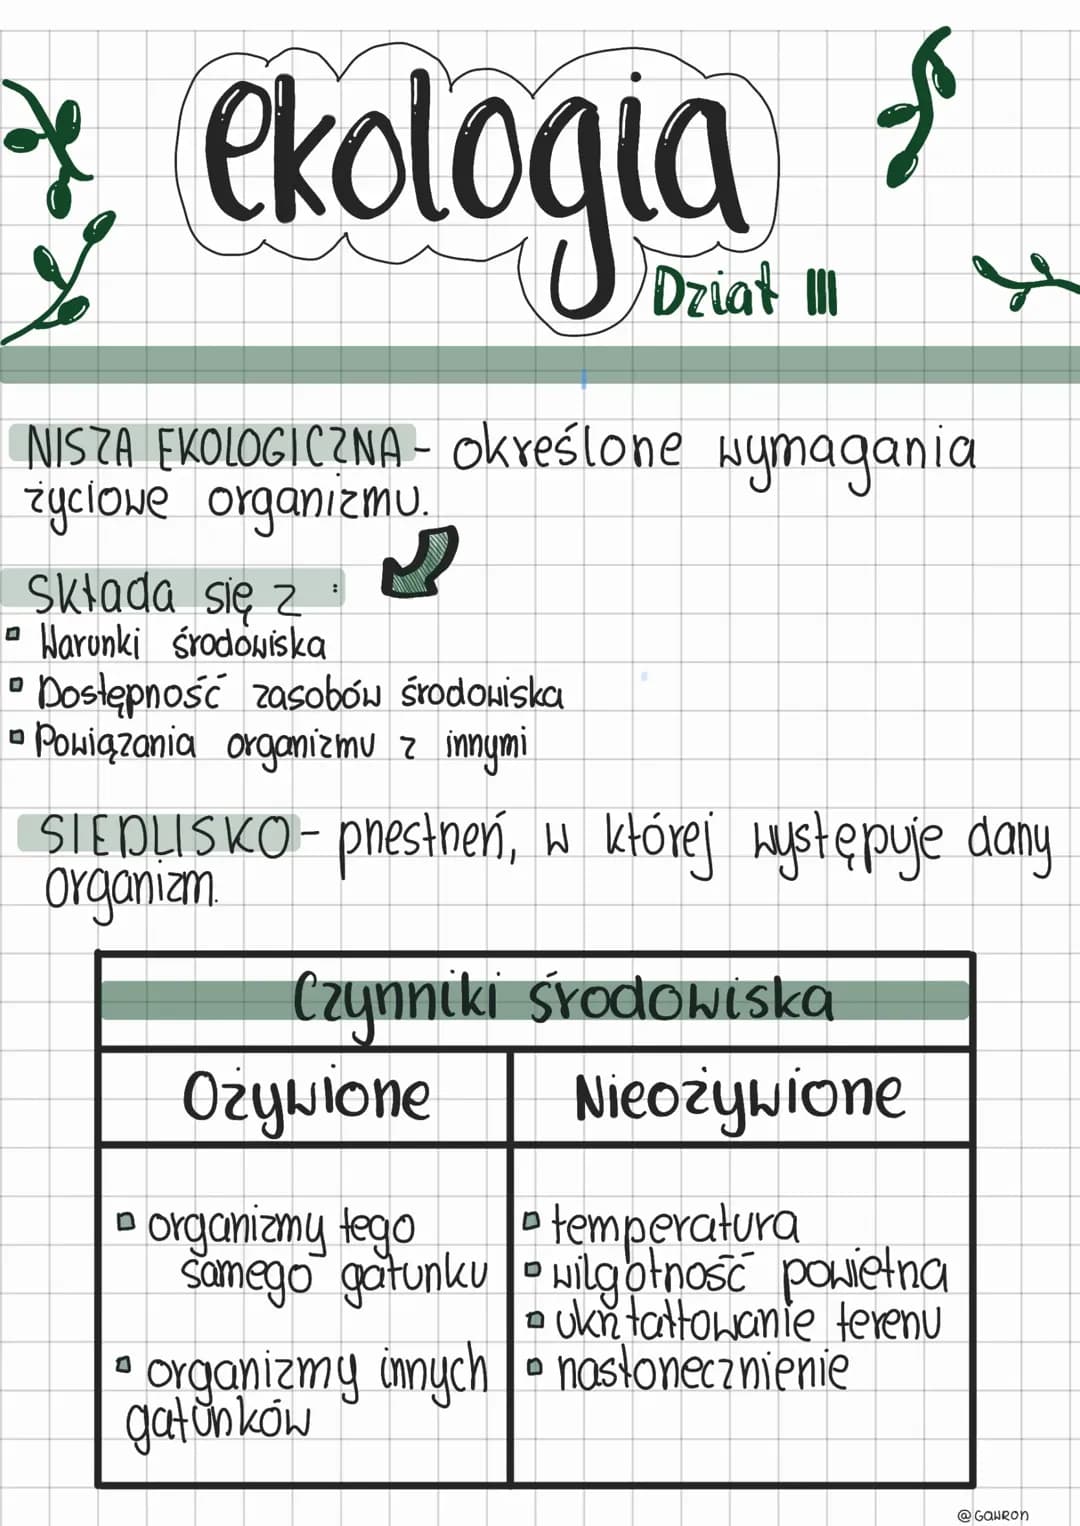 ekologia
Dział III
NISZA EKOLOGICZNA - określone wymagania
życiowe organizmu.
Składa się z :
Warunki środowiska
Dostępność zasobów środowiska
Powiązania organizmu z innymi
SIEDLISKO - przestrzeń, w której występuje dany
organizm.
Czynniki środowiska
Ożywione Nieożywione
organizmy tego
samego gatunku
organizmy innych
gatunków
temperatura
wilgotność powietrza
ukształtowanie terenu
nasłonecznienie
@GAWRON